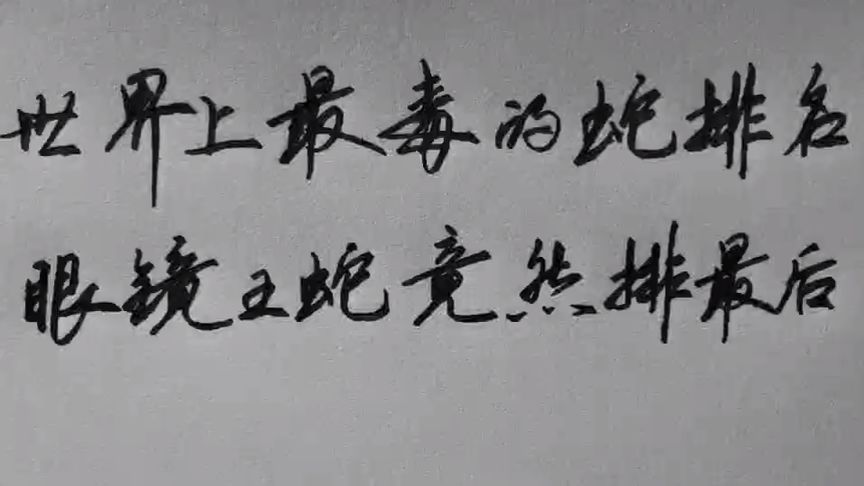 世界上最毒的蛇排名
眼镜王蛇竟然排最后